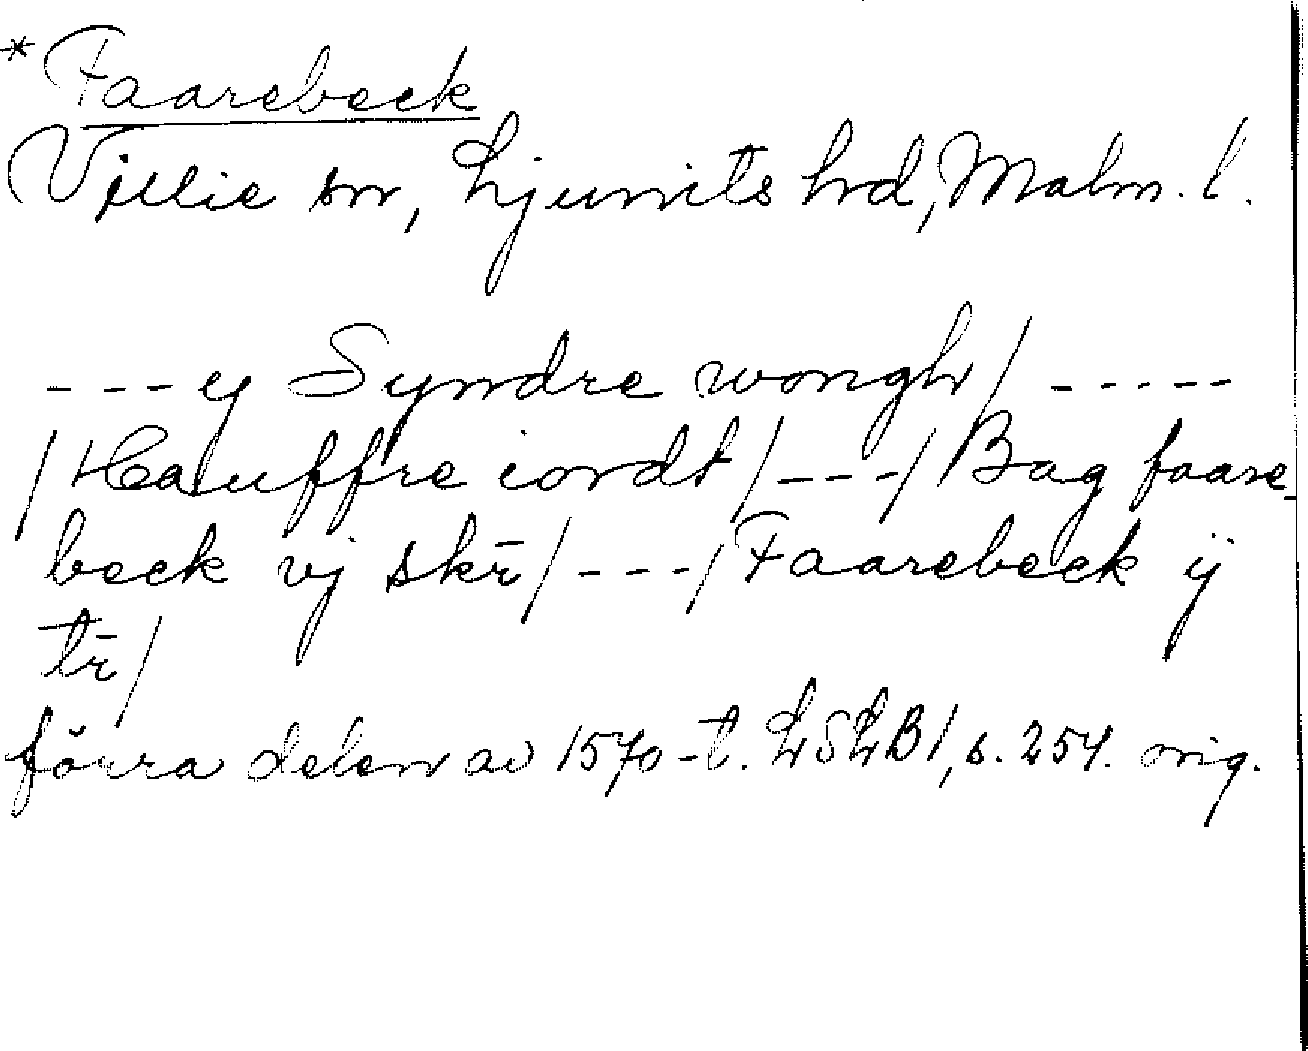 * Faarebeck
Villie sn, Ljunits hd, Malm. l.
--- ij Syndre wongh / -----
/ Hauffre iordt / --- / Bag faare-
beck vj skr̄ / --- / Faarebeck ij
tr̄ /
förra delen av 1570-t. LSLB 1, s. 254. orig.